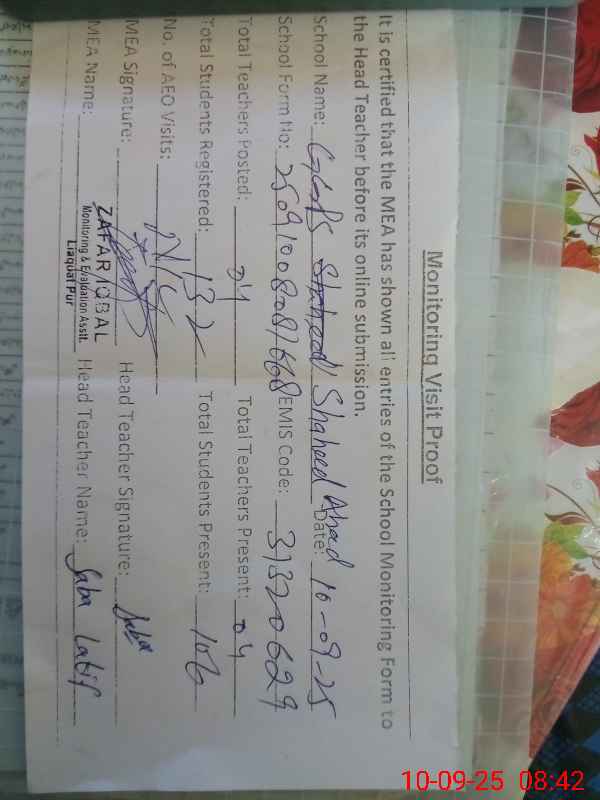 Monitoring Visit Proof
It is certified that the MEA has shown all entries of the School Monitoring Form to
the Head Teacher before its online submission.
School Name: GGPS Shaheed Shaheed Abad Date: 10-09-25
School Form No: 25091008087668 EMIS Code: 31320629
Total Teachers Posted: 04 Total Teachers Present: 04
Total Students Registered: 132 Total Students Present: 106
No. of AEO Visits:
MEA Signature: Head Teacher Signature: Saba
MEA Name: ZAFAR IQBAL Head Teacher Name: Saba Latif
Monitoring & Evaluation Asstt.
Liaquat Pur
10-09-25 08:42